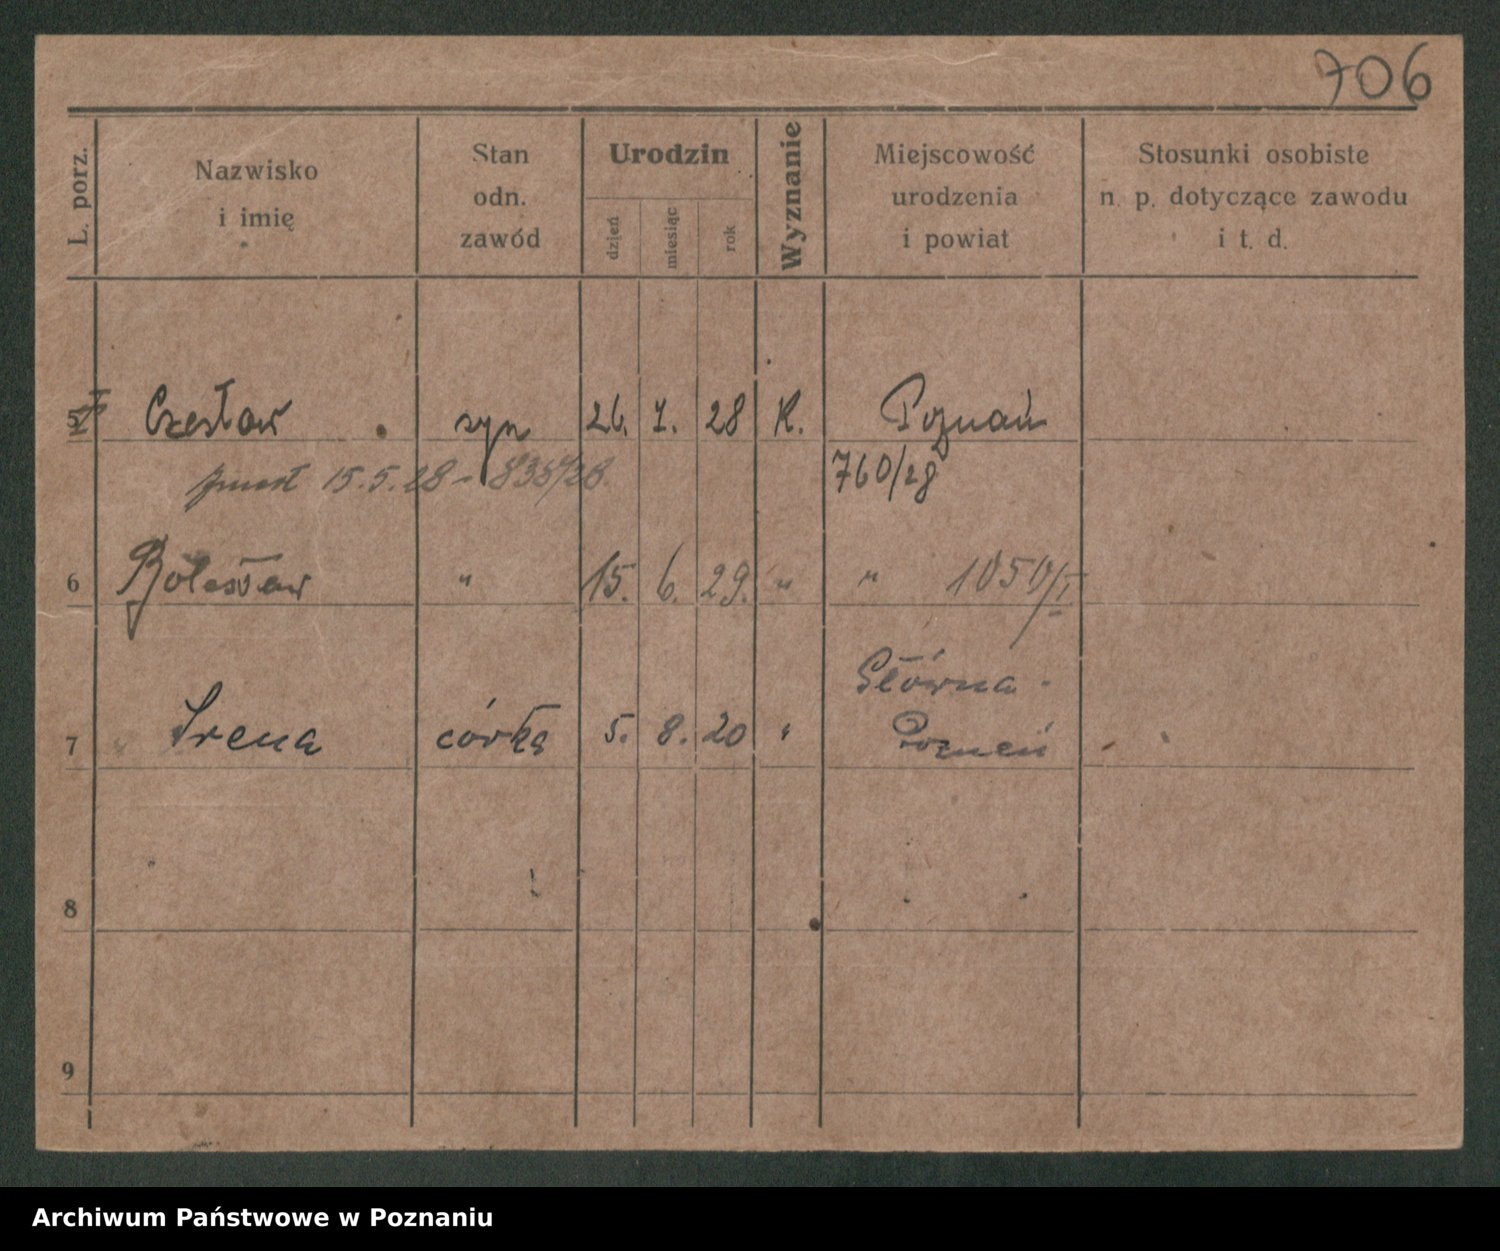 706
L. porz.
Nazwisko
i imię
Stan
odn.
zawód
Urodzin
dzień
miesiąc
rok
Wyznanie
Miejscowość
urodzenia
i powiat
Stosunki osobiste
n. p. dotyczące zawodu
i t. d.
5 Czesław syn 26. 1. 28 K. Poznań
zmarł 15.5.28 - 835/28. 760/28
6 Bolesław " 15. 6. 29. " " 1050/I
Główna -
7 Irena córka 5. 8. 20 " Poznań
8
9
Archiwum Państwowe w Poznaniu